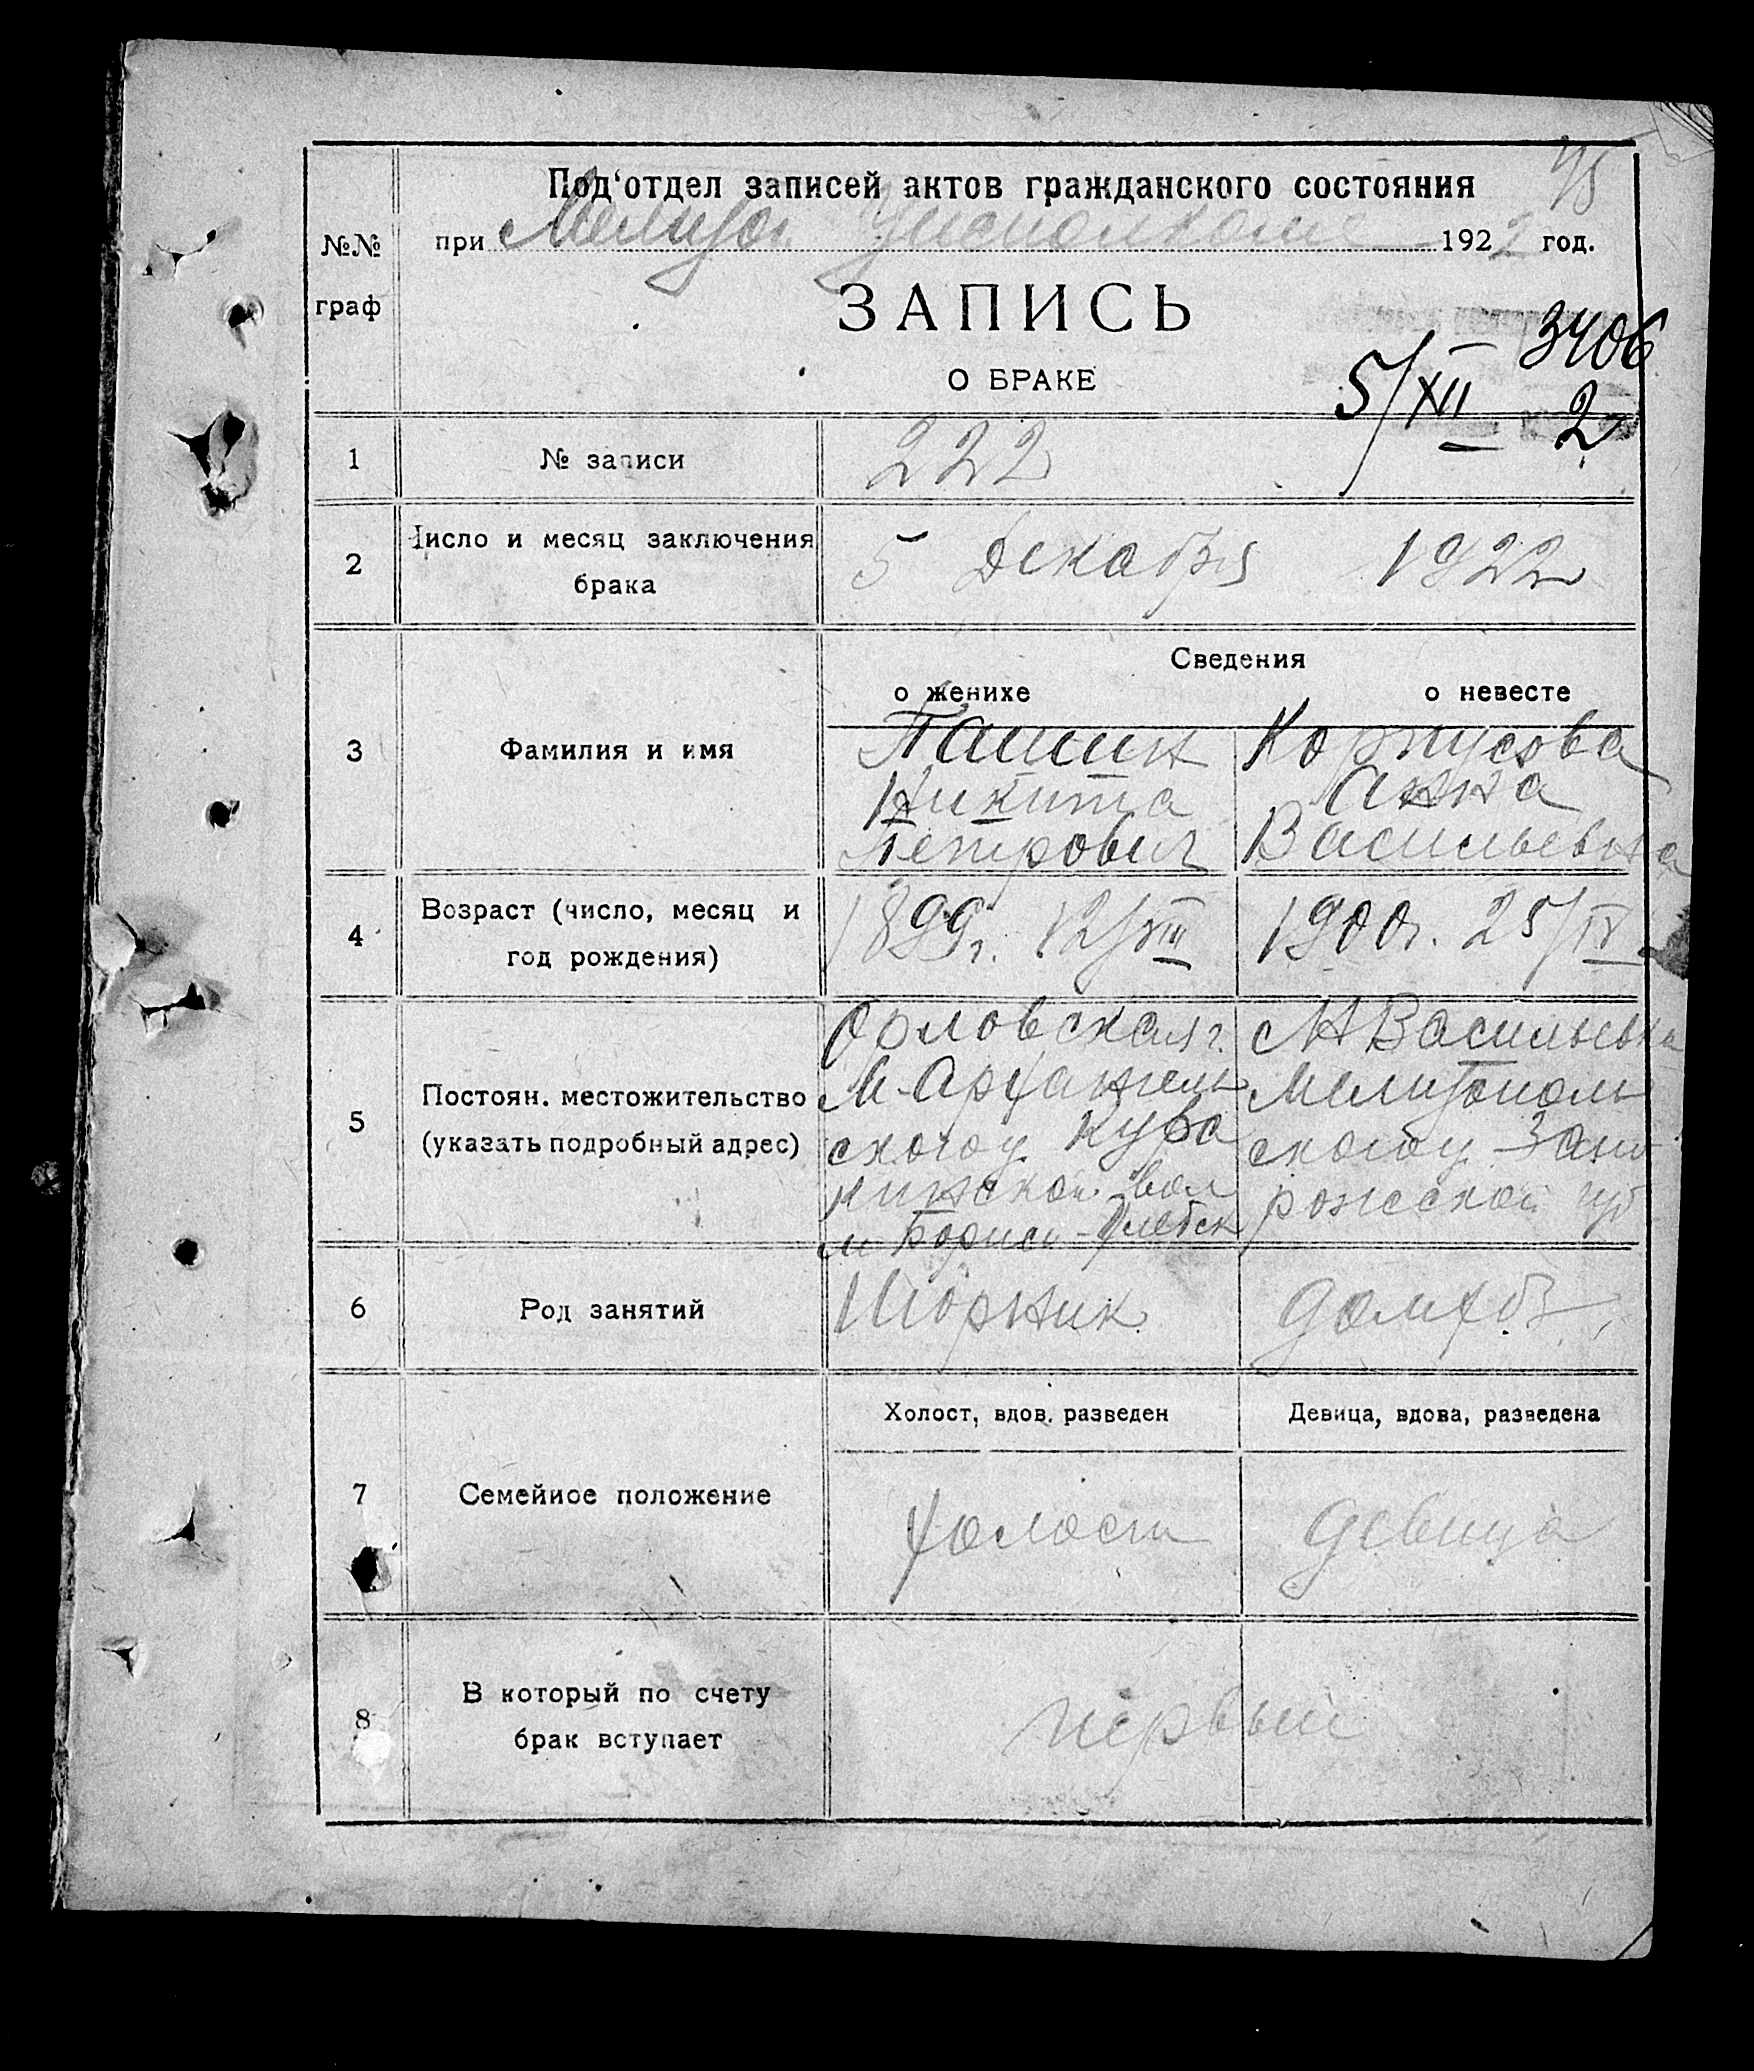 Под'отдел записей актов гражданского состояния
при Мелитоп. Уисполкоме 1922 год.
№№ граф
ЗАПИСЬ
О БРАКЕ
3406
5/XII 2
1 № записи 222
2 Число и месяц заключения брака 5 Декабря 1922
Сведения
о женихе о невесте
3 Фамилия и имя
Пашин Корпусова
Никита Анна
Петрович Васильевна
4 Возраст (число, месяц и год рождения) 1899г. 12/VIII 1900г. 25/IV
5 Постоян. местожительство (указать подробный адрес)
Орловская г. Васильевка
М-Архангель Мелитополь
ского у. ского у Запо
кинской вол рожской губ
6 Род занятий Шорник домхоз
Холост, вдов. разведен Девица, вдова, разведена
7 Семейное положение холост девица
8 В который по счету брак вступает первый